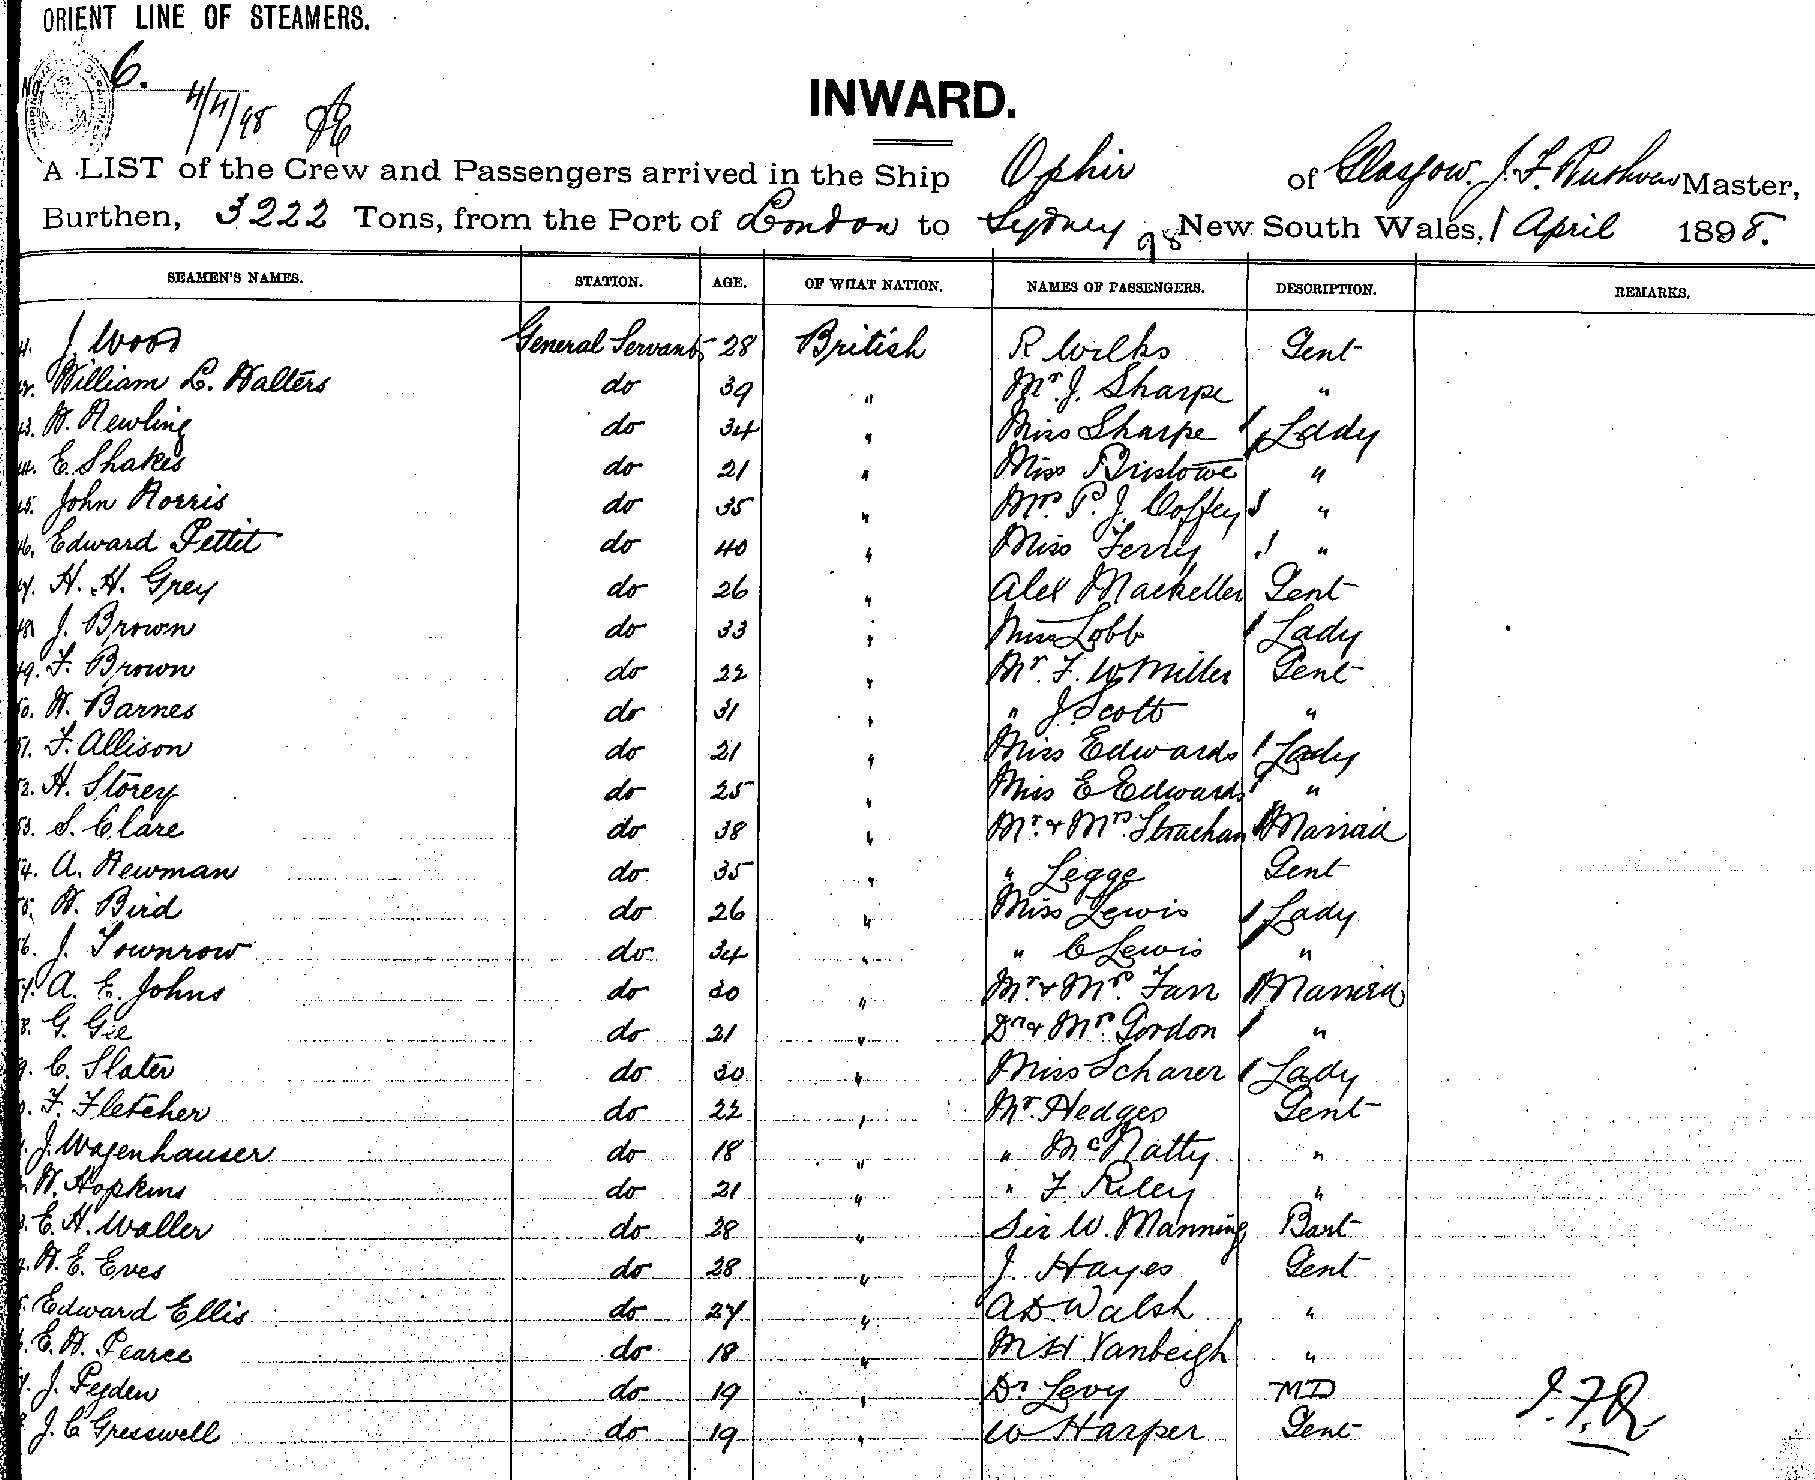 ORIENT LINE OF STEAMERS.
No. 6.
4/4/98
INWARD.
A LIST of the Crew and Passengers arrived in the Ship Ophir of Glasgow. J. F. Ruthven Master,
Burthen, 3222 Tons, from the Port of London to Sydney New South Wales, 1 April 1898.
98
SEAMEN'S NAMES. STATION. AGE. OF WHAT NATION. NAMES OF PASSENGERS. DESCRIPTION. REMARKS.
J. Wood General Servant 28 British R Wilks Gent
William L. Walters do 39 " Mr. J. Sharpe "
W. Newling do 34 " Miss Sharpe 1 Lady
E. Shakes do 21 " Miss Bristowe "
45. John Norris do 35 " Mrs. P. J. Coffey 1 "
46. Edward Pettit do 40 " Miss Terry 1 "
47. H. H. Grey do 26 " Alex Mackeller Gent
48. J. Brown do 33 " Miss Lobb 1 Lady
49. F. Brown do 22 " Mr. F. W Miller Gent
50. W. Barnes do 31 " " J. Scott "
51. F. Allison do 21 " Miss Edwards 1 Lady
52. H. Storey do 25 " Miss E Edwards 1 "
53. S. Clare do 38 " Mr. & Mrs. Strachan 1 Married
54. A. Newman do 35 " " Legge Gent
55. W. Bird do 26 " Miss Lewis 1 Lady
56. J. Townrow do 34 " " C Lewis 1 "
57. A. E. Johns do 30 " Mr. & Mrs. Farr 1 Married
58. G. Gee do 21 " Dr & Mrs. Gordon 1 "
9. C. Slater do 30 " Miss Scharer 1 Lady
F. Fletcher do 22 " Mr. Hedges Gent
J. Wagenhauser do 18 " " McNatty "
W. Hopkins do 21 " " F Riley "
E. H. Waller do 28 " Sir W. Manning Bart
W. E. Eves do 28 " J. Hayes Gent
Edward Ellis do 27 " A D Walsh "
E. W. Pearce do 18 " M H Vanbeigh "
J. Pegden do 19 " Dr Levy MD
J. C Gresswell do 19 " W Harper Gent
J. F. R.